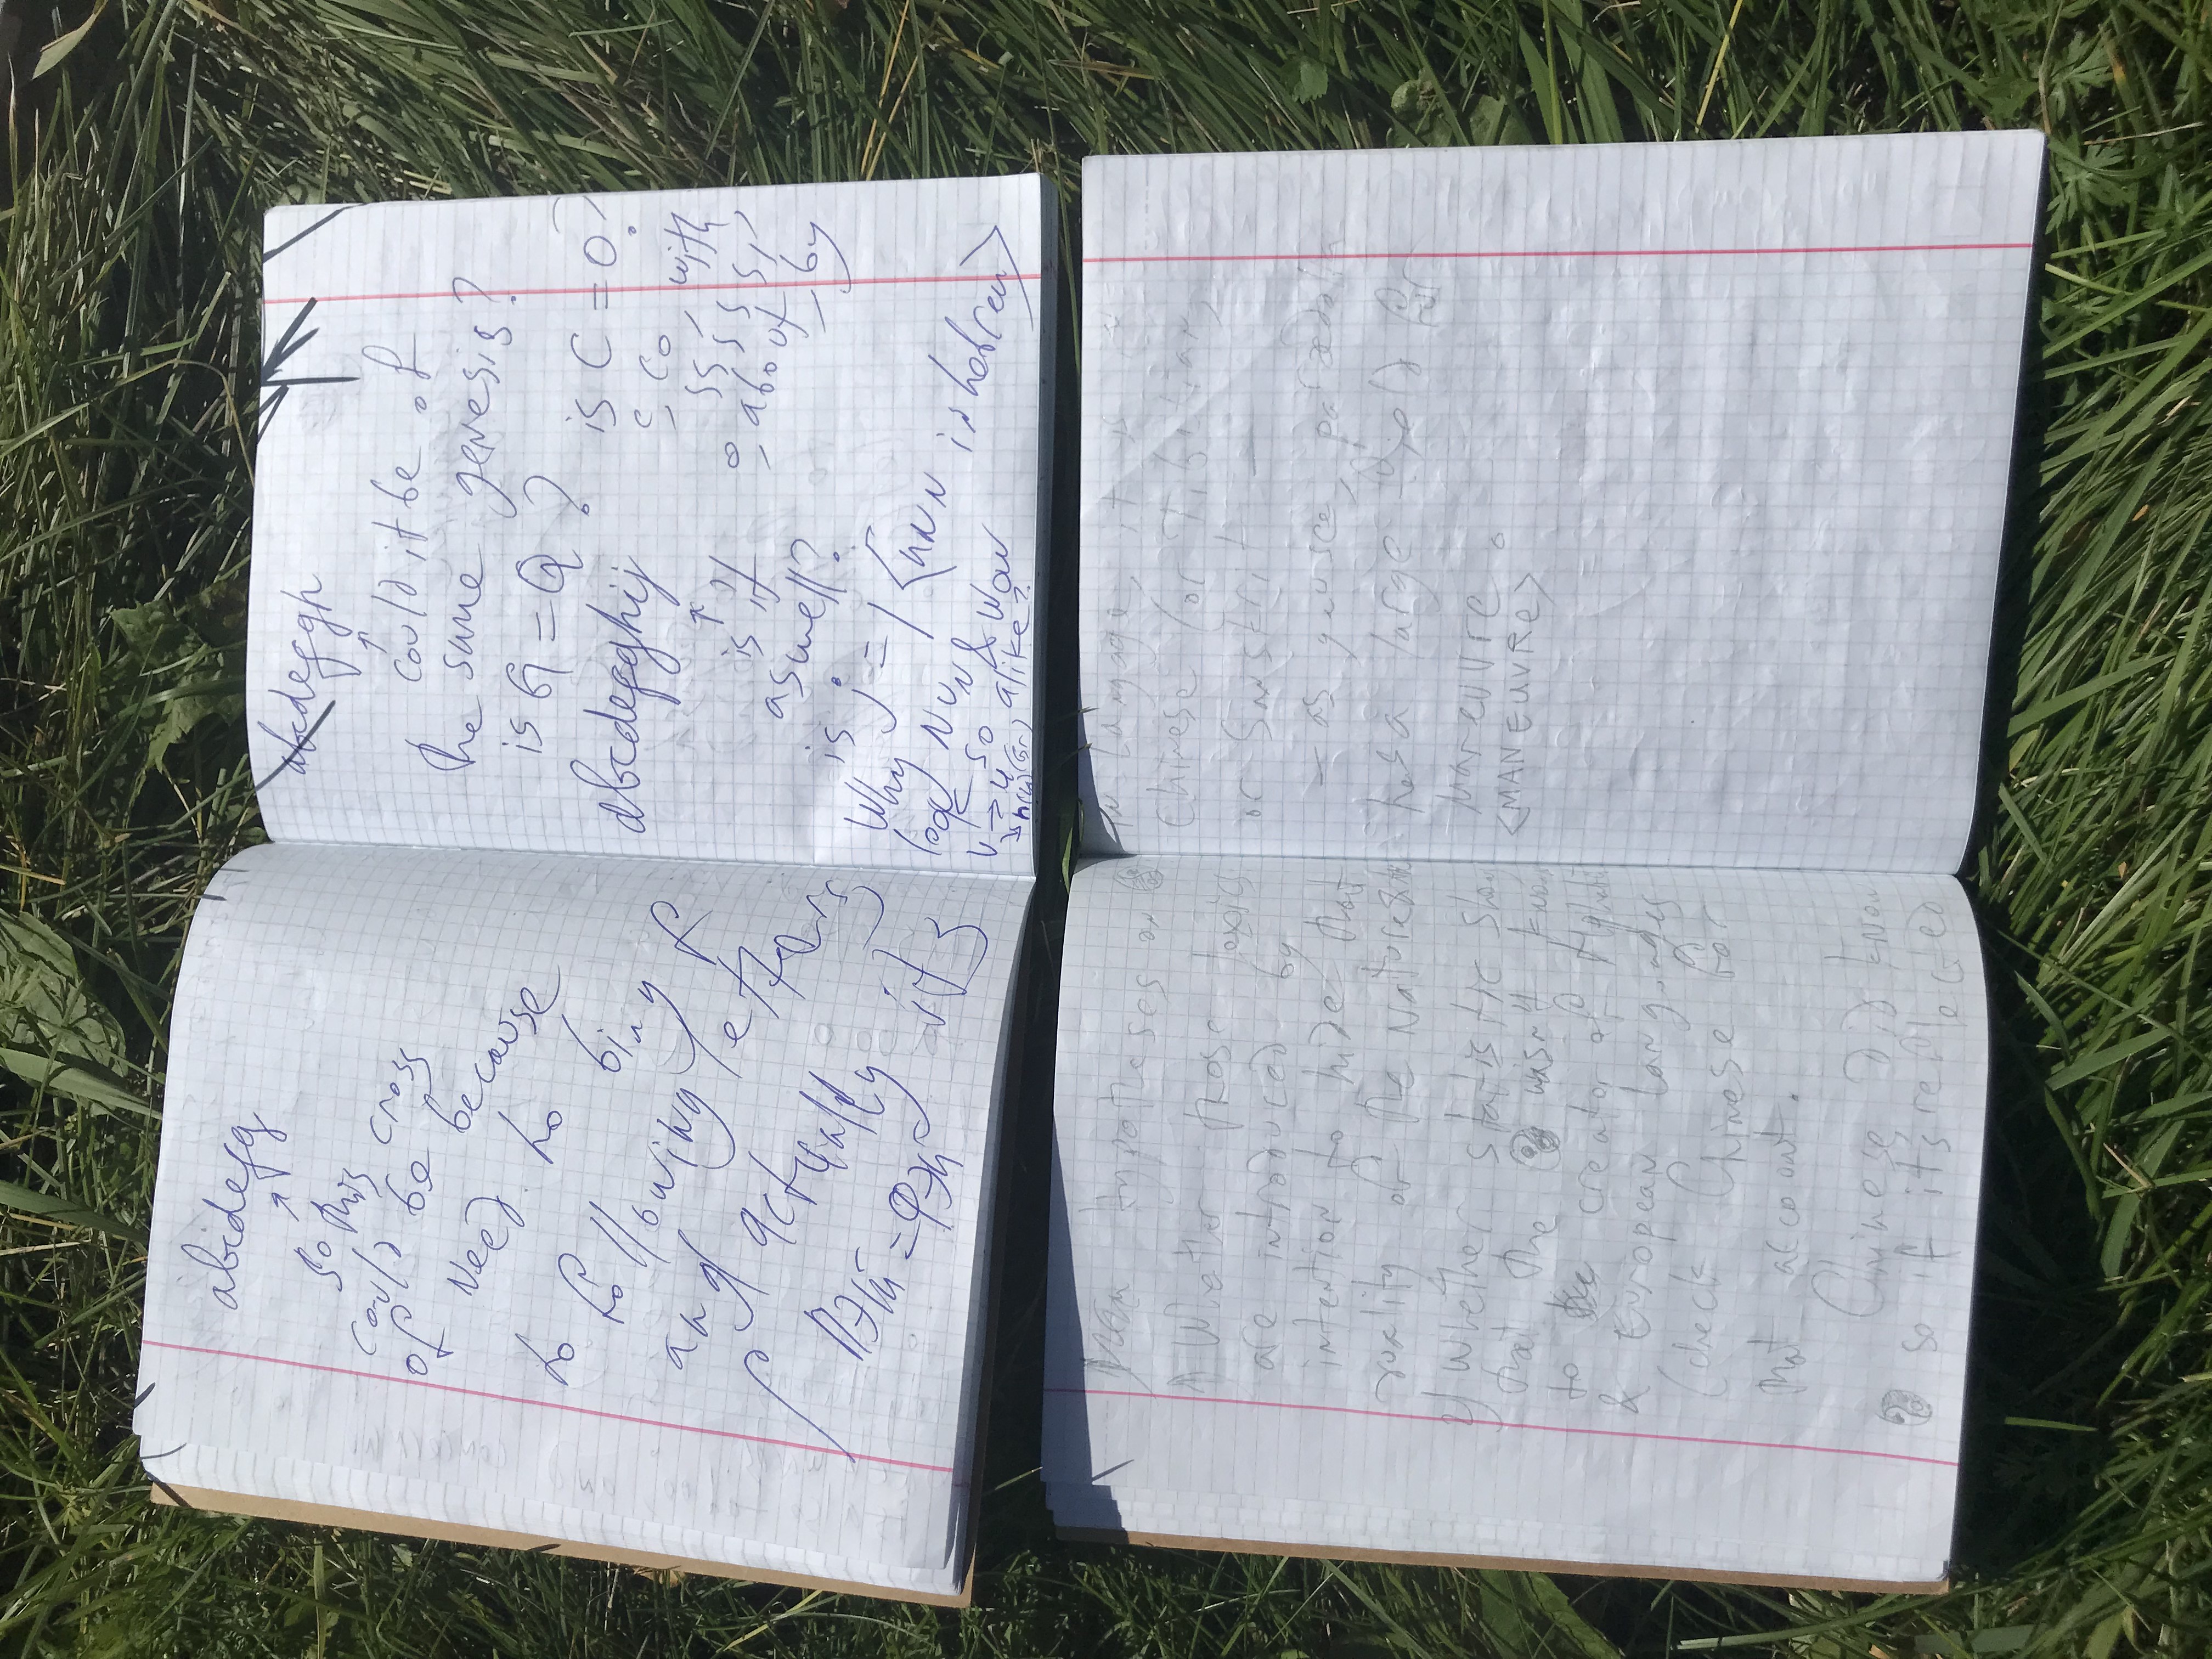 abcdefg
↑
so this cross
could be because
of need to bing f
to following letters
and actually it's
f
пэй = фэй
abcdefgh
↑
could it be of
the same genesis?
is G = Q ?
is C = O?
c, co, with
ss s s s,
o, about, by
abcdefghij
↑
is it
aswell?
is j = 1 < in hebrew>
Why
look NUN & Waw
so alike?
v → u
hypotheses on
1) Whether those topics
are introduced by
intention to hide that
duality of the Nature &
2) Whether statistic show
that the wasn't known
to creator of Alphabet
& European languages
(check Chinese for
that account.
Chinese did know
so if it's reflected
in langage, it is in
Chinese (or Tibetian,
or Sanskrit —
— as , pareidolia
has a large field for
maneuvre.
<MANEUVRe>